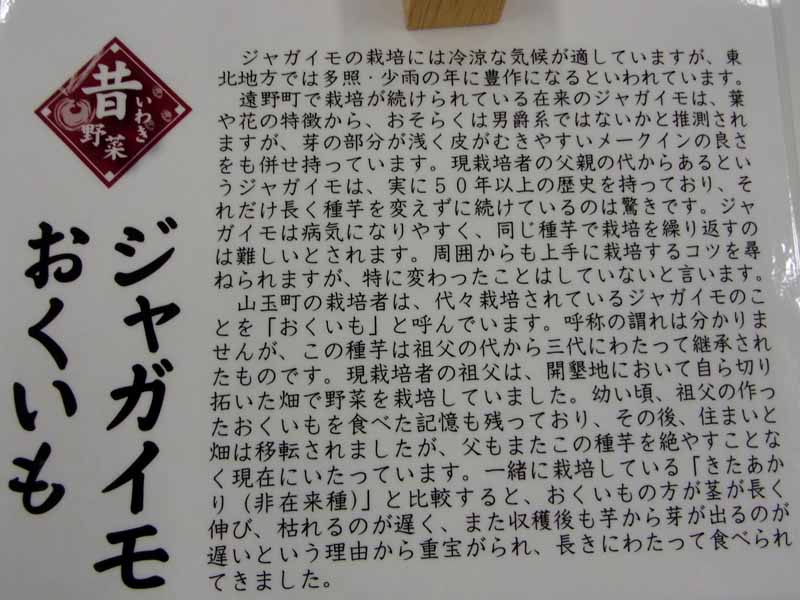 昔
いわき
野菜
ジャガイモ
おくいも
ジャガイモの栽培には冷涼な気候が適していますが、東
北地方では多照・少雨の年に豊作になるといわれています。
遠野町で栽培が続けられている在来のジャガイモは、葉
や花の特徴から、おそらくは男爵系ではないかと推測され
ますが、芽の部分が浅く皮がむきやすいメークインの良さ
をも併せ持っています。現栽培者の父親の代からあるとい
うジャガイモは、実に５０年以上の歴史を持っており、そ
れだけ長く種芋を変えずに続けているのは驚きです。ジャ
ガイモは病気になりやすく、同じ種芋で栽培を繰り返すの
は難しいとされます。周囲からも上手に栽培するコツを尋
ねられますが、特に変わったことはしていないと言います。
山玉町の栽培者は、代々栽培されているジャガイモのこ
とを「おくいも」と呼んでいます。呼称の謂れは分かりま
せんが、この種芋は祖父の代から三代にわたって継承され
たものです。現栽培者の祖父は、開墾地において自ら切り
拓いた畑で野菜を栽培していました。幼い頃、祖父の作っ
たおくいもを食べた記憶も残っており、その後、住まいと
畑は移転されましたが、父もまたこの種芋を絶やすことな
く現在にいたっています。一緒に栽培している「きたあか
り（非在来種）」と比較すると、おくいもの方が茎が長く
伸び、枯れるのが遅く、また収穫後も芋から芽が出るのが
遅いという理由から重宝がられ、長きにわたって食べられ
てきました。